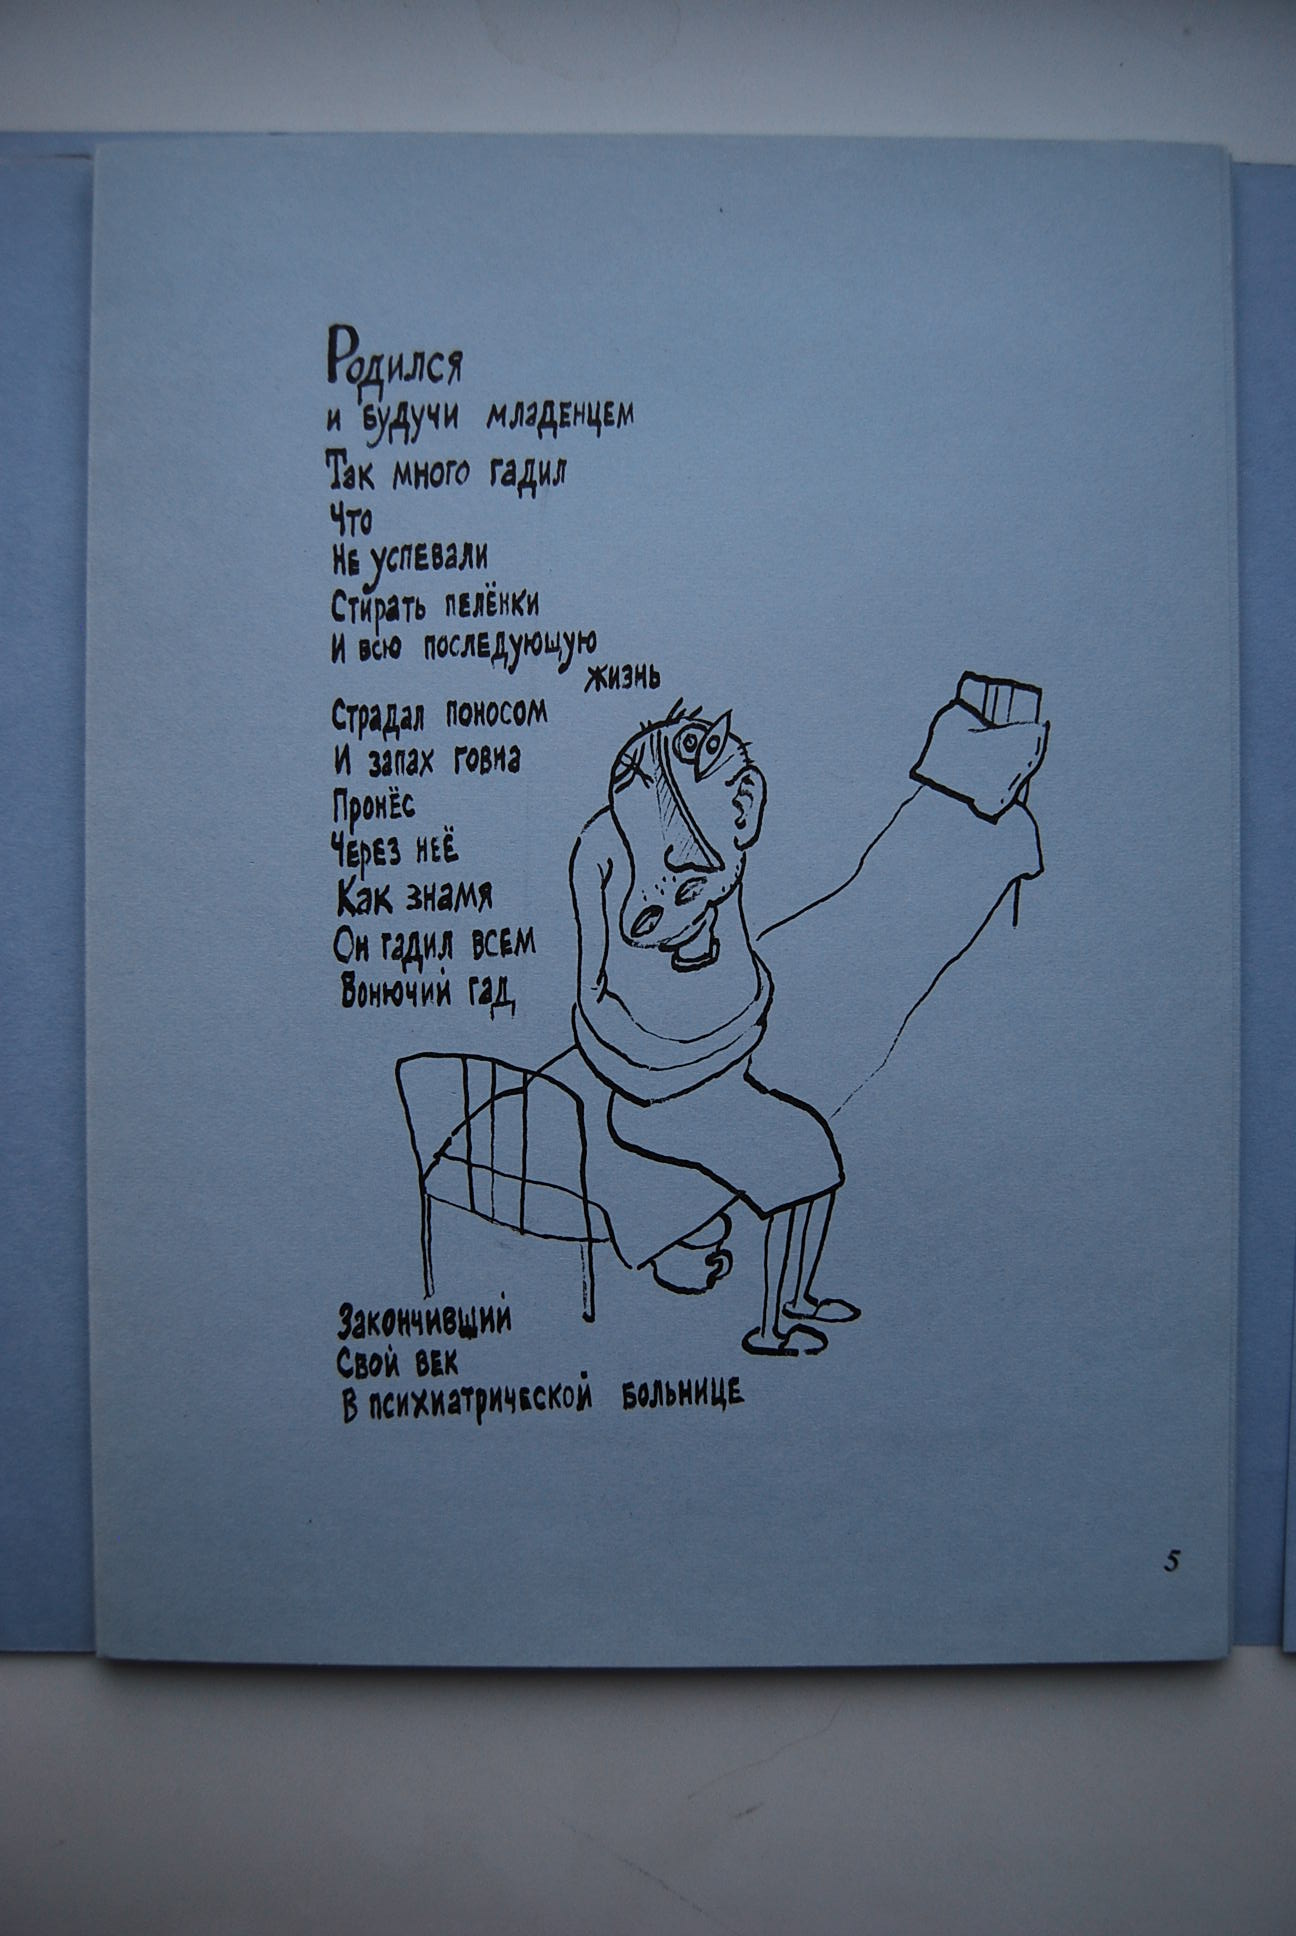 Родился
и будучи младенцем
Так много гадил
Что
Не успевали
Стирать пелёнки
И всю последующую
жизнь
Страдал поносом
И запах говна
Пронёс
Через неё
Как знамя
Он гадил всем
Вонючий гад
Закончивший
Свой век
В психиатрической больнице
5